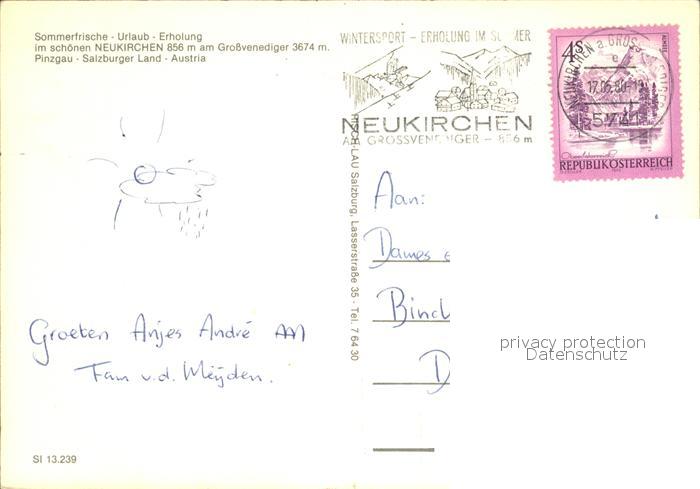 Sommerfrische - Urlaub - Erholung
im schönen NEUKIRCHEN 856 m am Großvenediger 3674 m.
Pinzgau - Salzburger Land - Austria
WINTERSPORT - ERHOLUNG IM SOMMER
NEUKIRCHEN
AM GROSSVENEDIGER - 856 m
4S
17.05.80
5741
REPUBLIK ÖSTERREICH
LAU Salzburg, Lasserstraße 35 - Tel. 7 64 30
Aan:
Dames
Bind
D
Groeten Anjes André
Fam v.d. Meÿden.
privacy protection
Datenschutz
SI 13.239